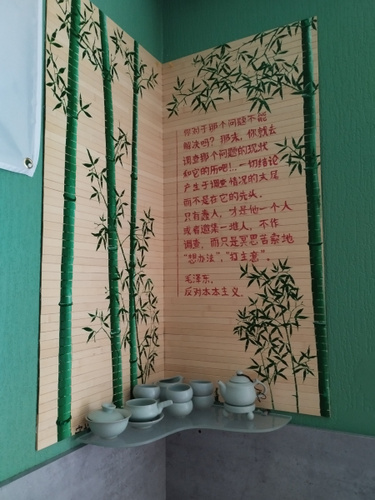 你对于那个问题不能
解决吗？那末，你就去
调查那个问题的现状
和它的历史吧！…一切结论
产生于调查情况的末尾
而不是在它的先头。
只有蠢人，才是他一个人
或者邀集一堆人，不作
调查，而只是冥思苦索地
“想办法”，“打主意”。
毛泽东，
反对本本主义。